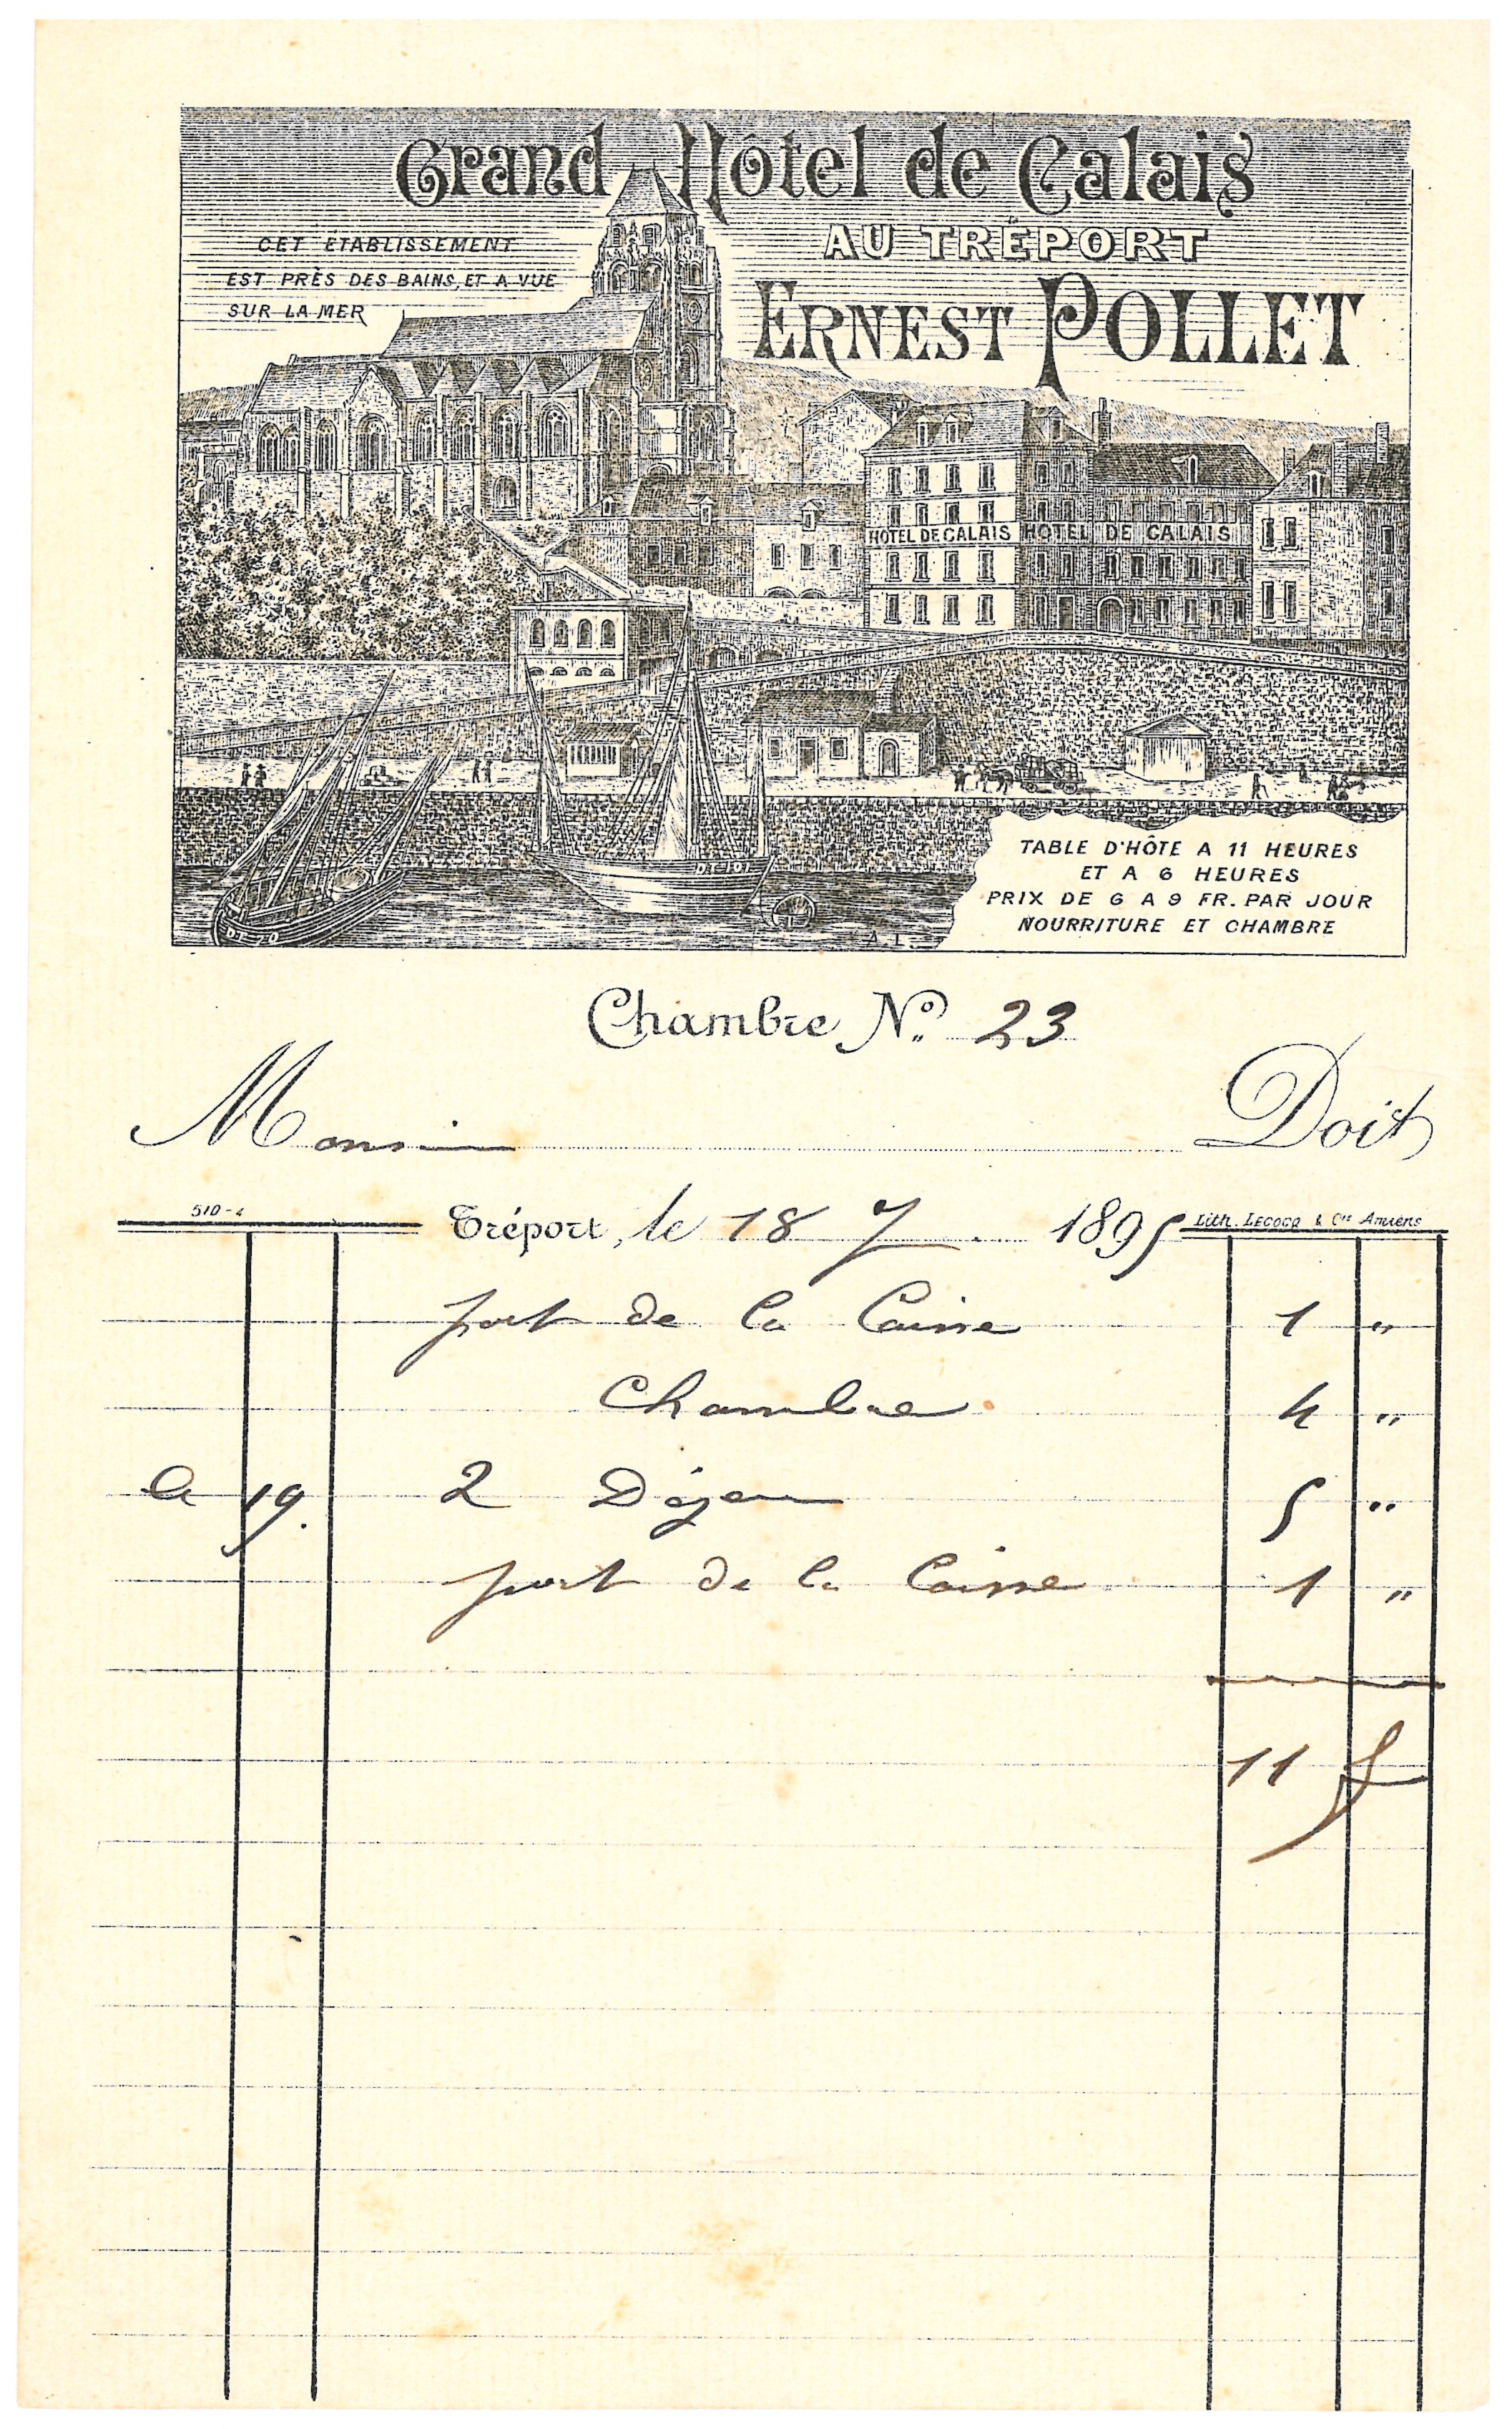 Grand Hôtel de Calais
AU TRÉPORT
ERNEST POLLET
CET ÉTABLISSEMENT
EST PRÈS DES BAINS, ET A VUE
SUR LA MER
HOTEL DE CALAIS HOTEL DE CALAIS
TABLE D'HÔTE A 11 HEURES
ET A 6 HEURES
PRIX DE 6 A 9 FR. PAR JOUR
NOURRITURE ET CHAMBRE
A. L.
Chambre No. 23
Monsieur Doit
510-4
Tréport, le 18 7 1895
Lith. Lecocq & Cie Amiens
port de la Caisse 1 "
Chambre 4 "
le 19. 2 Déjeu 5 "
port de la Caisse 1 "
11 f